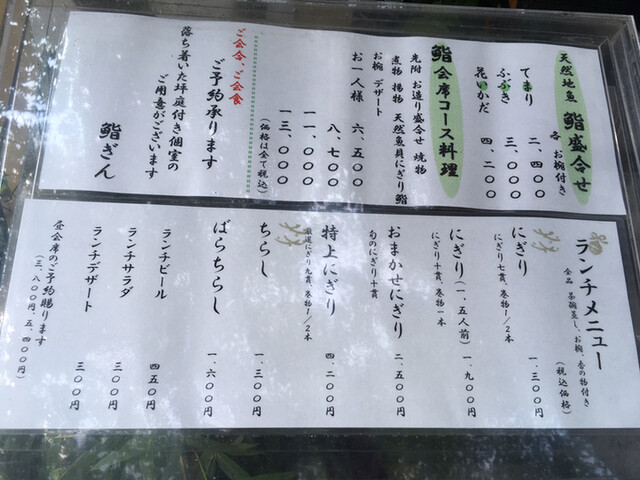 天然地魚 鮨盛合せ
各 お椀付き
てまり 二、四〇〇
ふぶき 三、〇〇〇
花いかだ 四、二〇〇
鮨会席コース料理
先附 お造り盛合せ 焼物
煮物 揚物 天然魚貝にぎり鮨
お椀 デザート
お一人様 六、五〇〇
八、七〇〇
一一、〇〇〇
一三、〇〇〇
(価格は全て税込)
ご会合、ご会食
ご予約承ります
落ち着いた坪庭付き個室の
ご用意がございます
鮨ぎん
ランチメニュー
全品 茶碗蒸し、お椀、香の物付き
(税込価格)
にぎり 一、三〇〇円
にぎり七貫、巻物1/2本
にぎり(一、五人前) 一、九〇〇円
にぎり十貫、巻物一本
おまかせにぎり 二、五〇〇円
旬のにぎり十貫
特上にぎり 四、二〇〇円
厳選にぎり九貫、巻物1/2本
ちらし 一、三〇〇円
ばらちらし 一、六〇〇円
ランチビール 四五〇円
ランチサラダ 三〇〇円
ランチデザート 三〇〇円
昼会席のご予約賜ります
(三、八〇〇円、五、四〇〇円)